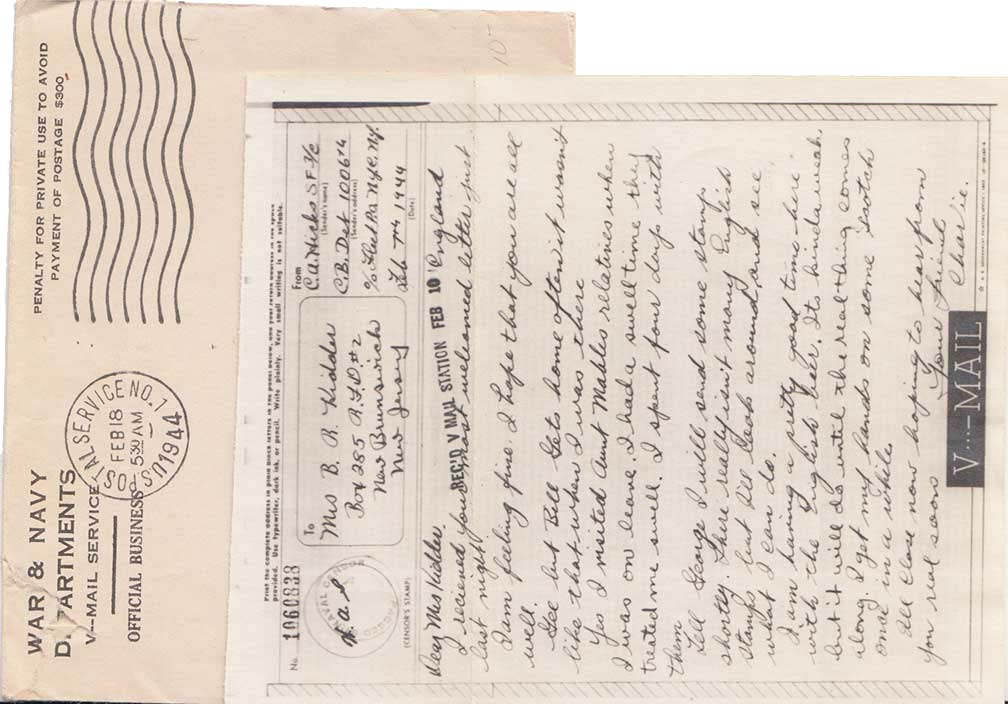 WAR & NAVY
DEPARTMENTS
V---MAIL SERVICE
OFFICIAL BUSINESS
PENALTY FOR PRIVATE USE TO AVOID
PAYMENT OF POSTAGE $300
U.S. POSTAL SERVICE NO. 1
FEB 18
5 30 AM
1944
10-
Print the complete address in plain block letters in the panel below, and your return address in the space
provided. Use typewriter, dark ink, or pencil. Write plainly. Very small writing is not suitable.
No. 1060838
N.a.S
NAVAL CENSOR
(CENSOR'S STAMP)
To
Mrs B. R. Kidder
Box 285 R.F.D #2
New Brunswick
New Jersey
From
C.A. Hicks S.F. 3/c
(Sender's name)
C.B. Det 1006
(Sender's address)
c/o Fleet P.O. N.Y.C. N.Y.
Feb 7th 1944
(Date)
REC'D V MAIL STATION FEB 10
England
Dear Mrs Kidder
I recieved your most welcomed letter just
last night.
I am feeling fine. I hope that you are all
well.
Gee but Bill gets home often it wasn't
like that when I was there
Yes I visited Aunt Mables relatives when
I was on leave. I had a swell time they
treated me swell. I spent four days with
them
Tell George I will send some stamps
shortly. There really isn't many English
stamps but I'll look around and see
what I can do.
I am having a pretty good time here.
with the English beer. Its kinda weak.
but it will do until the real thing comes
along. I get my hands on some scotch
once in a while.
I'll close now hoping to hear from
you real soon
Your friend
Charlie.
V···—MAIL